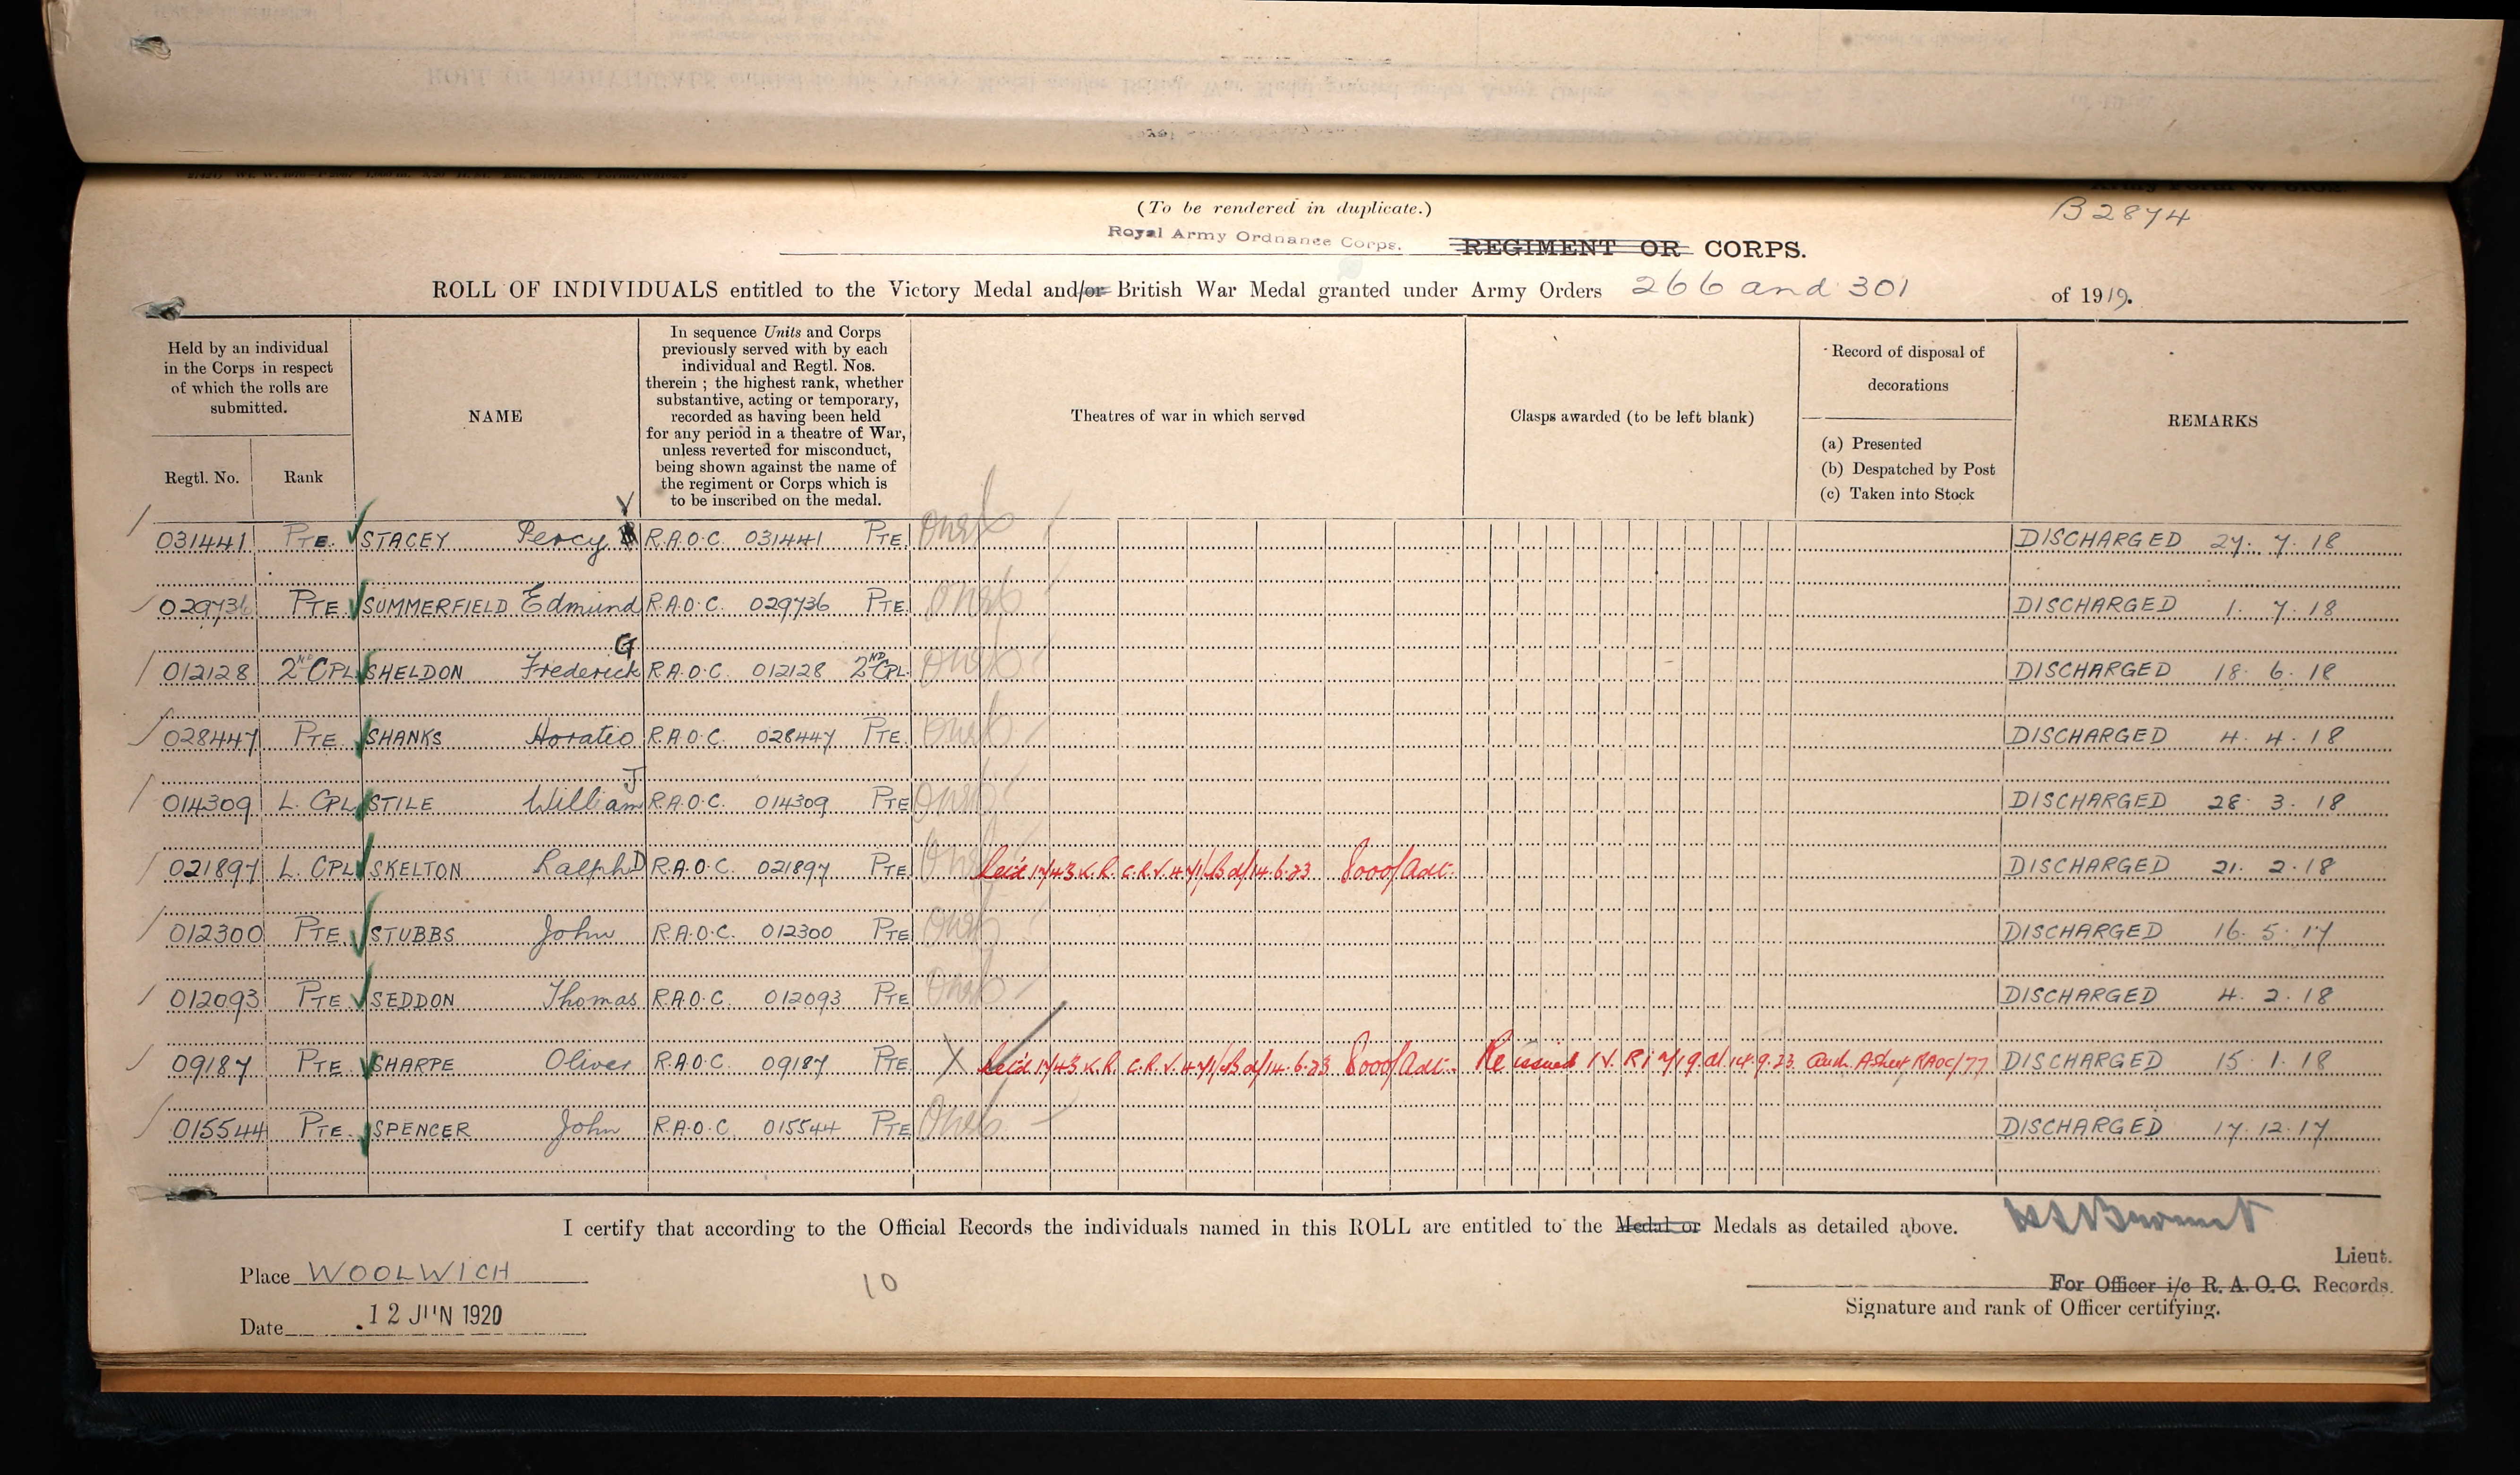 (To be rendered in duplicate.)
B2874
Royal Army Ordnance Corps. REGIMENT OR CORPS.
ROLL OF INDIVIDUALS entitled to the Victory Medal and/or British War Medal granted under Army Orders 266 and 301 of 1919.
Held by an individual in the Corps in respect of which the rolls are submitted.
Regtl. No.
Rank
NAME
In sequence Units and Corps previously served with by each individual and Regtl. Nos. therein ; the highest rank, whether substantive, acting or temporary, recorded as having been held for any period in a theatre of War, unless reverted for misconduct, being shown against the name of the regiment or Corps which is to be inscribed on the medal.
Theatres of war in which served
Clasps awarded (to be left blank)
Record of disposal of decorations
(a) Presented
(b) Despatched by Post
(c) Taken into Stock
REMARKS
031441 PTE. STACEY Percy V R.A.O.C. 031441 PTE. DISCHARGED 27. 7. 18
029736 PTE. SUMMERFIELD Edmund R.A.O.C. 029736 PTE. DISCHARGED 1. 7. 18
012128 2ND CPL SHELDON Frederick G R.A.O.C. 012128 2ND CPL. DISCHARGED 18. 6. 18
028447 PTE. SHANKS Horatio R.A.O.C. 028447 PTE. DISCHARGED 4. 4. 18
014309 L. CPL STILE William J R.A.O.C. 014309 PTE DISCHARGED 28. 3. 18
021897 L. CPL SKELTON Ralph D R.A.O.C. 021897 PTE 8000/Adt. DISCHARGED 21. 2. 18
012300 PTE. STUBBS John R.A.O.C. 012300 PTE DISCHARGED 16. 5. 17
012093 PTE SEDDON Thomas R.A.O.C. 012093 PTE DISCHARGED 4. 2. 18
09187 PTE SHARPE Oliver R.A.O.C. 09187 PTE X 8000/Adt. Re issued DISCHARGED 15. 1. 18
015544 PTE. SPENCER John R.A.O.C. 015544 PTE DISCHARGED 17. 12. 17
I certify that according to the Official Records the individuals named in this ROLL are entitled to the Medal or Medals as detailed above.
Lieut.
Place WOOLWICH
10
For Officer i/c R. A. O. C. Records.
Date 12 JUN 1920
Signature and rank of Officer certifying.